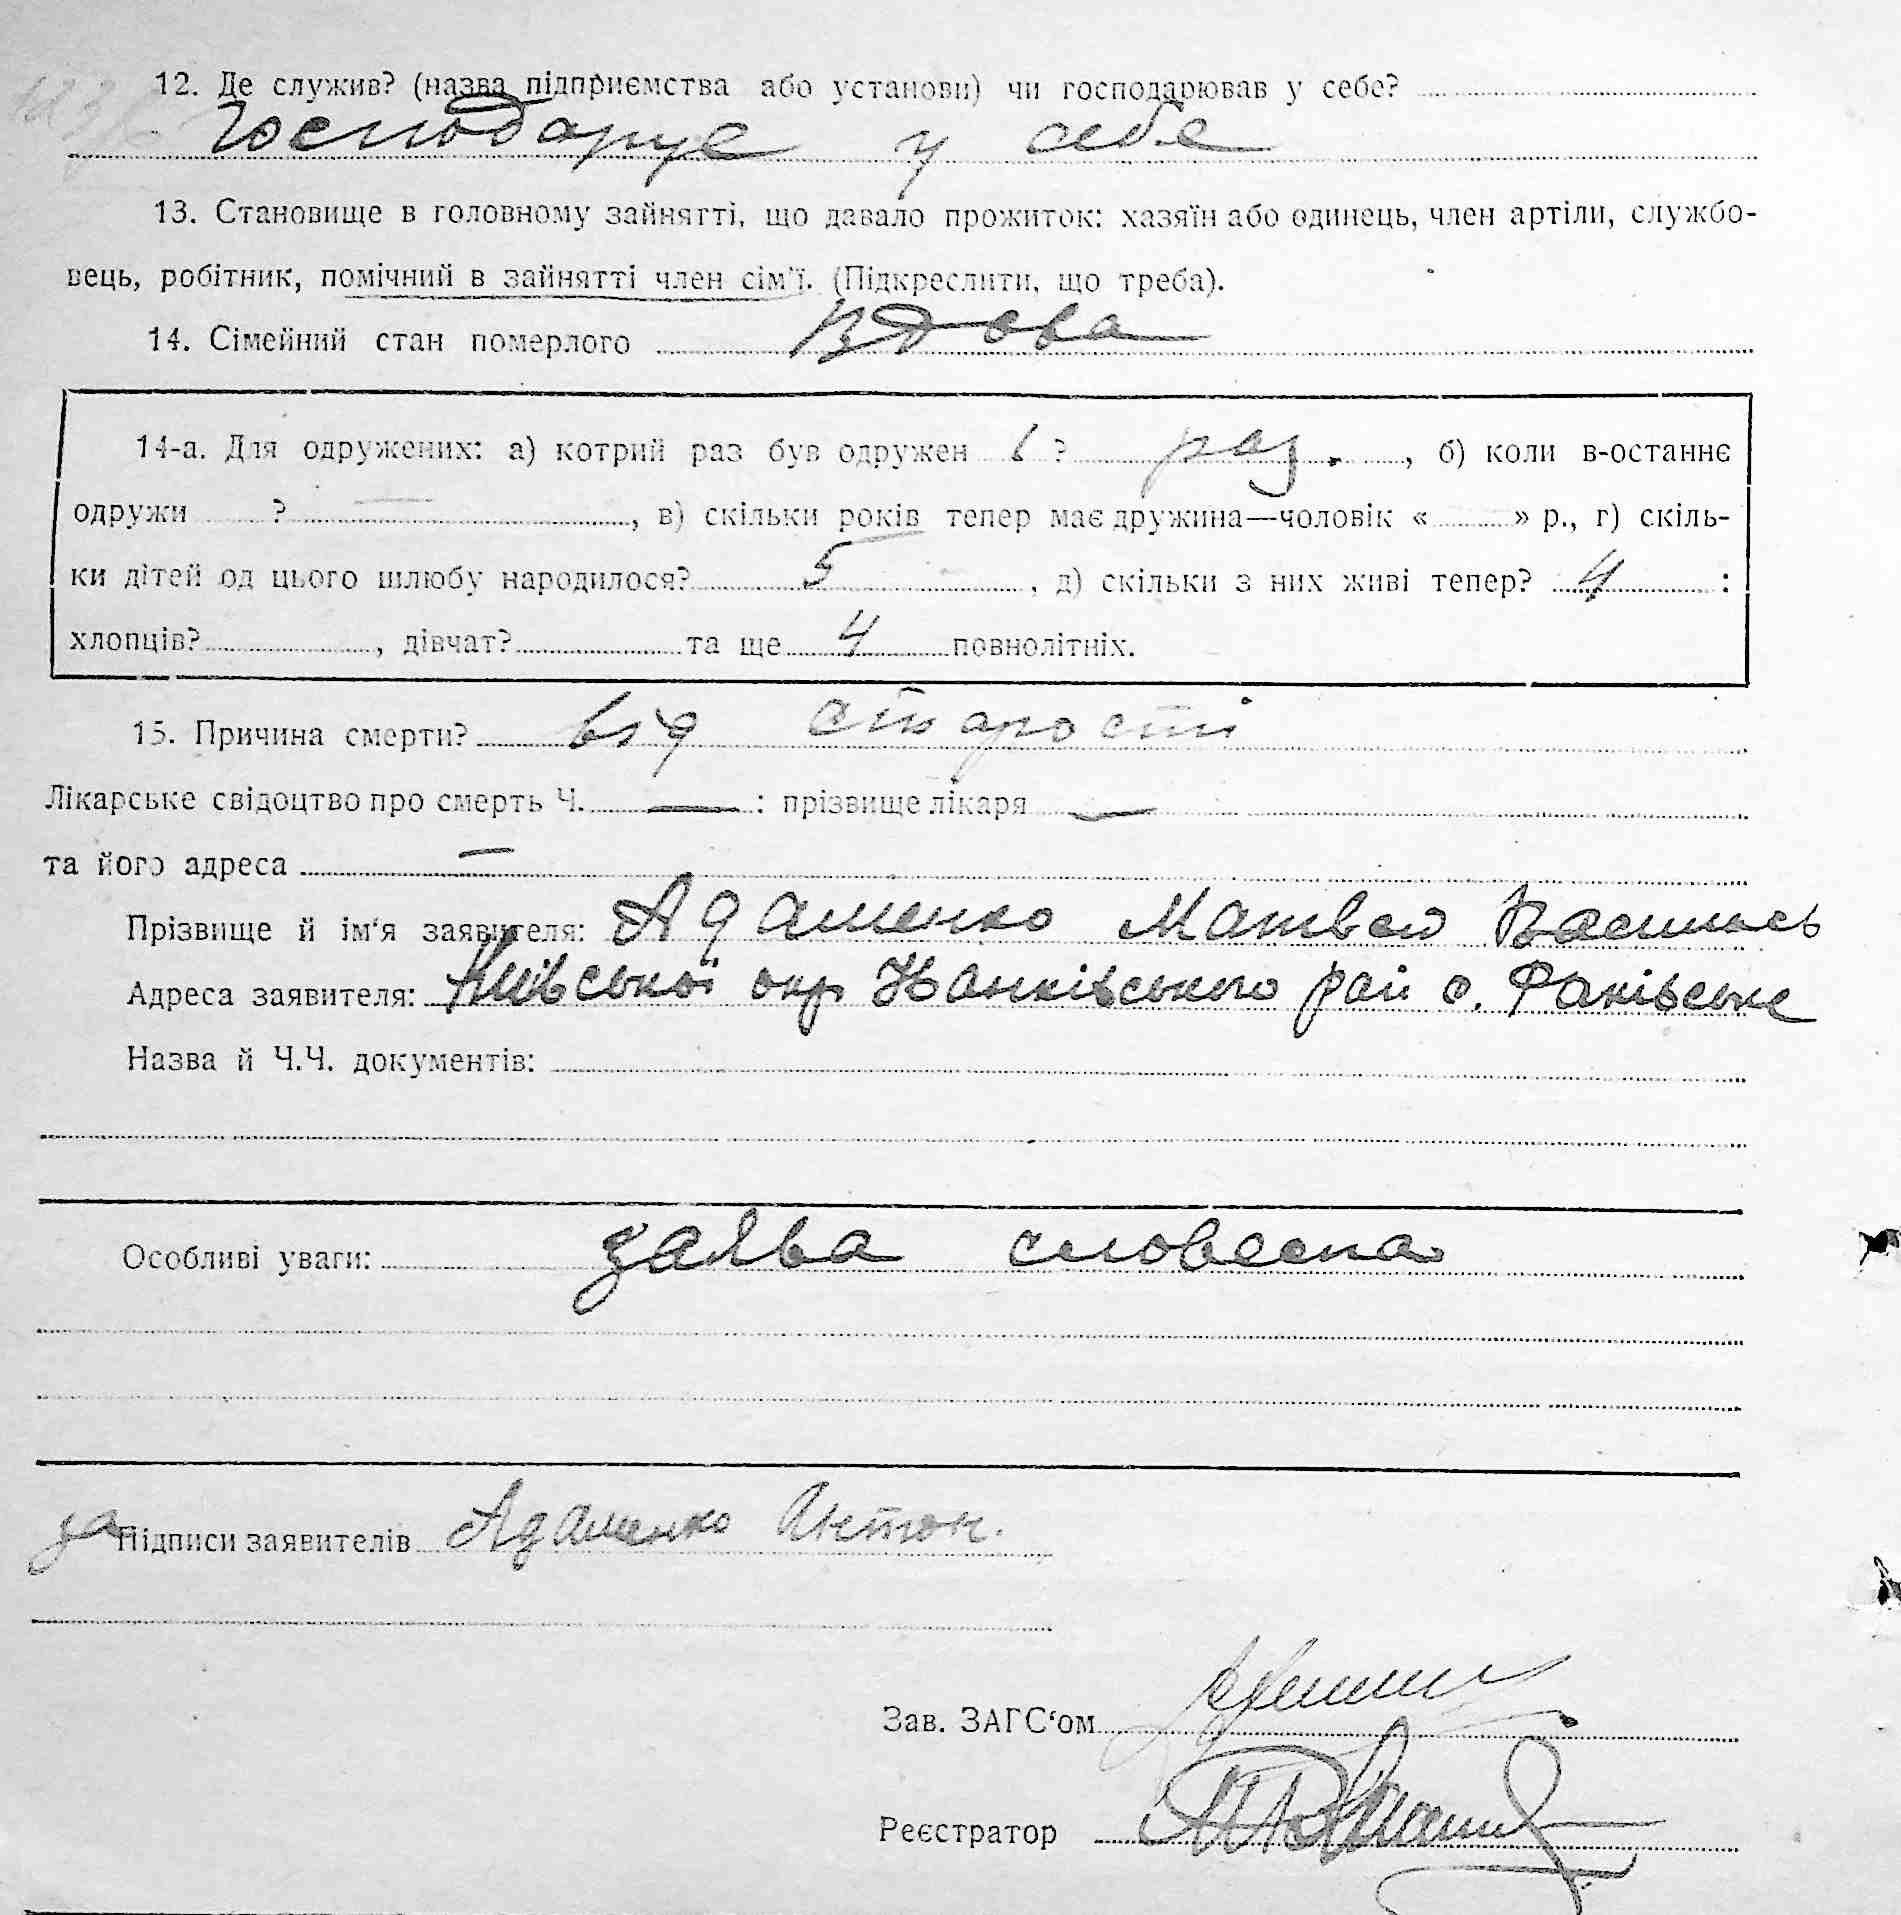 12. Де служив? (назва підприємства або установи) чи господарював у себе?
Господарує у себе
13. Становище в головному зайнятті, що давало прожиток: хазяїн або одинець, член артіли, службо-
вець, робітник, помічний в зайнятті член сім'ї. (Підкреслити, що треба).
14. Сімейний стан померлого Вдова
14-а. Для одружених: а) котрий раз був одружен 1? раз., б) коли в-останнє
одружи ? —, в) скільки років тепер має дружина—чоловік « » р., г) скіль-
ки дітей од цього шлюбу народилося? 5, д) скільки з них живі тепер? 4:
хлопців? , дівчат? та ще 4 повнолітніх.
15. Причина смерти? від старости
Лікарське свідоцтво про смерть Ч. —: прізвище лікаря —
та його адреса —
Прізвище й ім'я заявителя: Адаменко Матвей
Адреса заявителя: Київської окр Іванківського рай с.
Назва й Ч.Ч. документів:
Особливі уваги: заява словесна
за Підписи заявителів Адаменко Антон.
Зав. ЗАГС'ом
Реєстратор